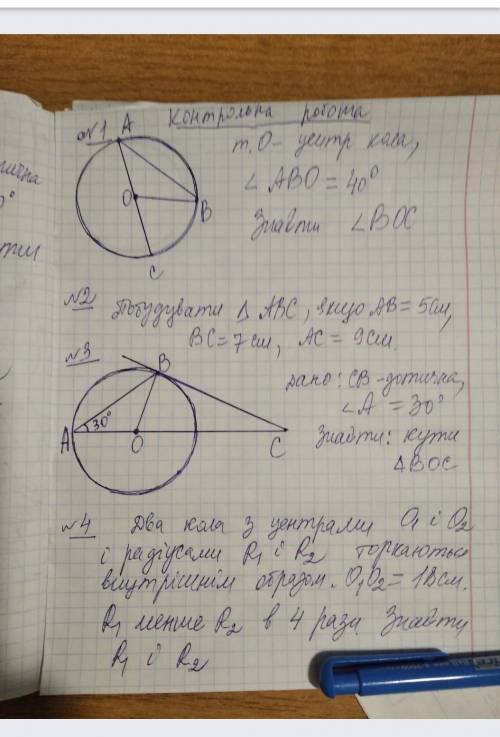 Контрольна робота
№1
A
O
B
C
т. О- центр кола,
∠ABO = 40°
Знайти ∠BOC
№2 Побудувати Δ ABC, якщо AB = 5см,
BC = 7см, AC = 9см.
№3
B
A
30°
O
C
Дано: CB - дотична,
∠A = 30°
Знайти: кути
ΔBOC
№4 Два кола з центрами O₁ і O₂
і радіусами R₁ і R₂ торкаються
внутрішнім образом. O₁O₂ = 18см.
R₁ менше R₂ в 4 рази Знайти
R₁ і R₂